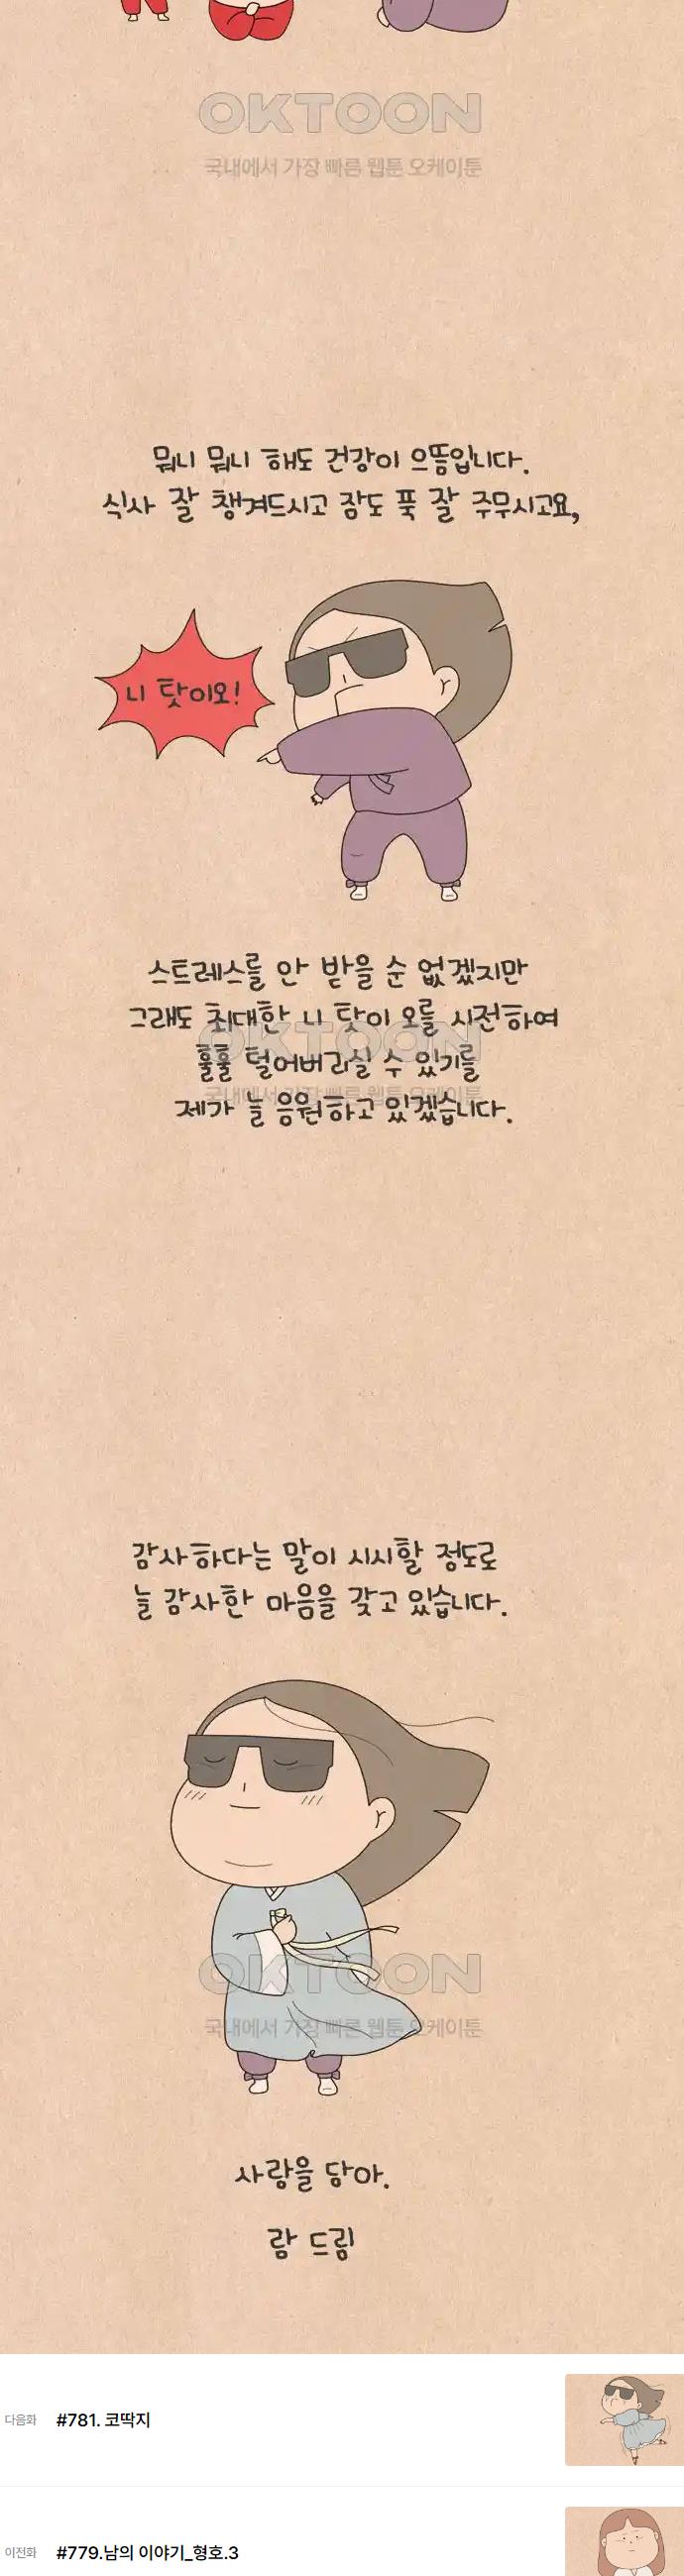 OKTOON
국내에서 가장 빠른 웹툰 오케이툰
뭐니 뭐니 해도 건강이 으뜸입니다.
식사 잘 챙겨드시고 잠도 푹 잘 주무시고요,
니 탓이오!
스트레스를 안 받을 순 없겠지만
그래도 최대한 니 탓이 오를 시전하여
OKTOON
훌훌 털어버리실 수 있기를
국내에서 가장 빠른 웹툰 오케이툰
제가 늘 응원하고 있겠습니다.
감사하다는 말이 시시할 정도로
늘 감사한 마음을 갖고 있습니다.
OKTOON
국내에서 가장 빠른 웹툰 오케이툰
사랑을 담아.
람 드림
다음화 #781. 코딱지
이전화 #779.남의 이야기_형호.3